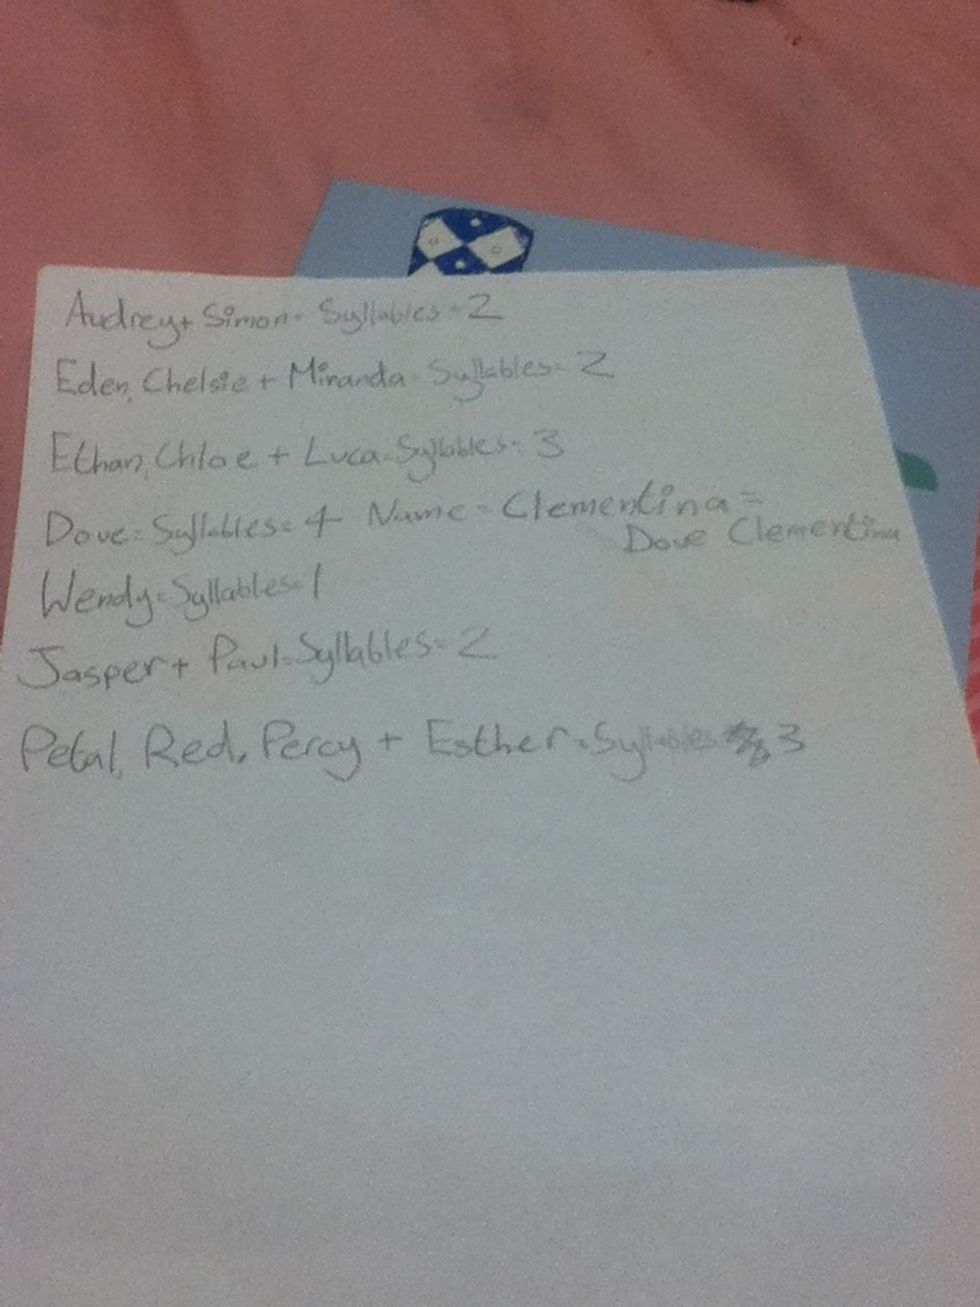 Audrey + Simon = Syllables = 2
Eden, Chelsie + Miranda = Syllables = 2
Ethan, Chloe + Luca = Syllables = 3
Dove = Syllables = 4 Name = Clementina =
Dove Clementina
Wendy = Syllables = 1
Jasper + Paul = Syllables = 2
Petal, Red, Percy + Esther = Syllables 3